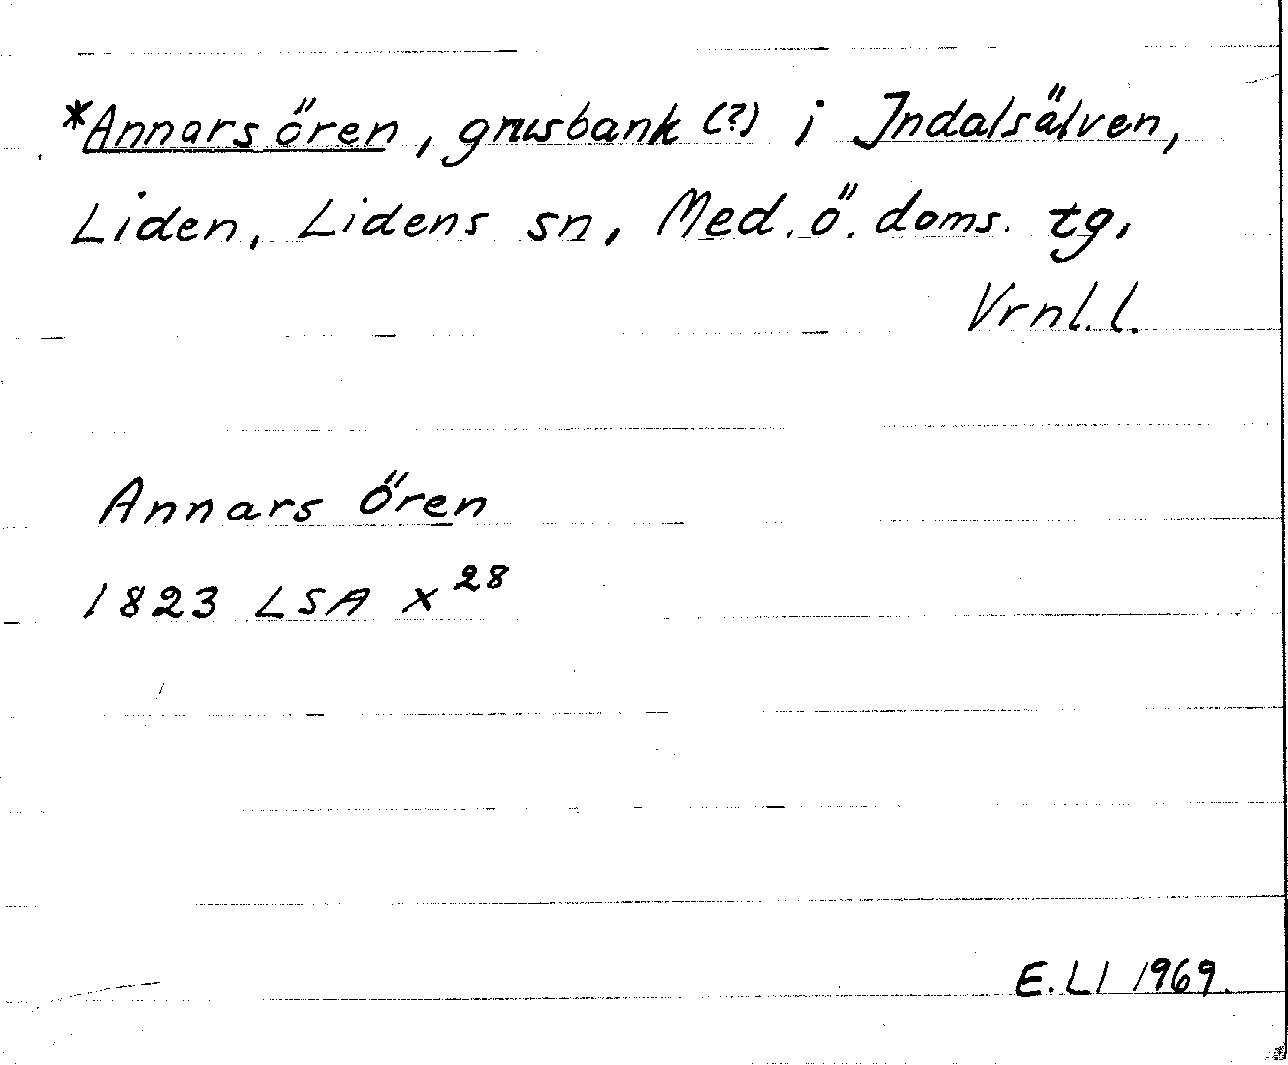 *Annarsören, grusbank (?) i Indalsälven,
Liden, Lidens sn, Med. ö. doms. tg,
Vrnl. l.
Annars Ören
1823 LSA X²⁸
E. LI 1969.